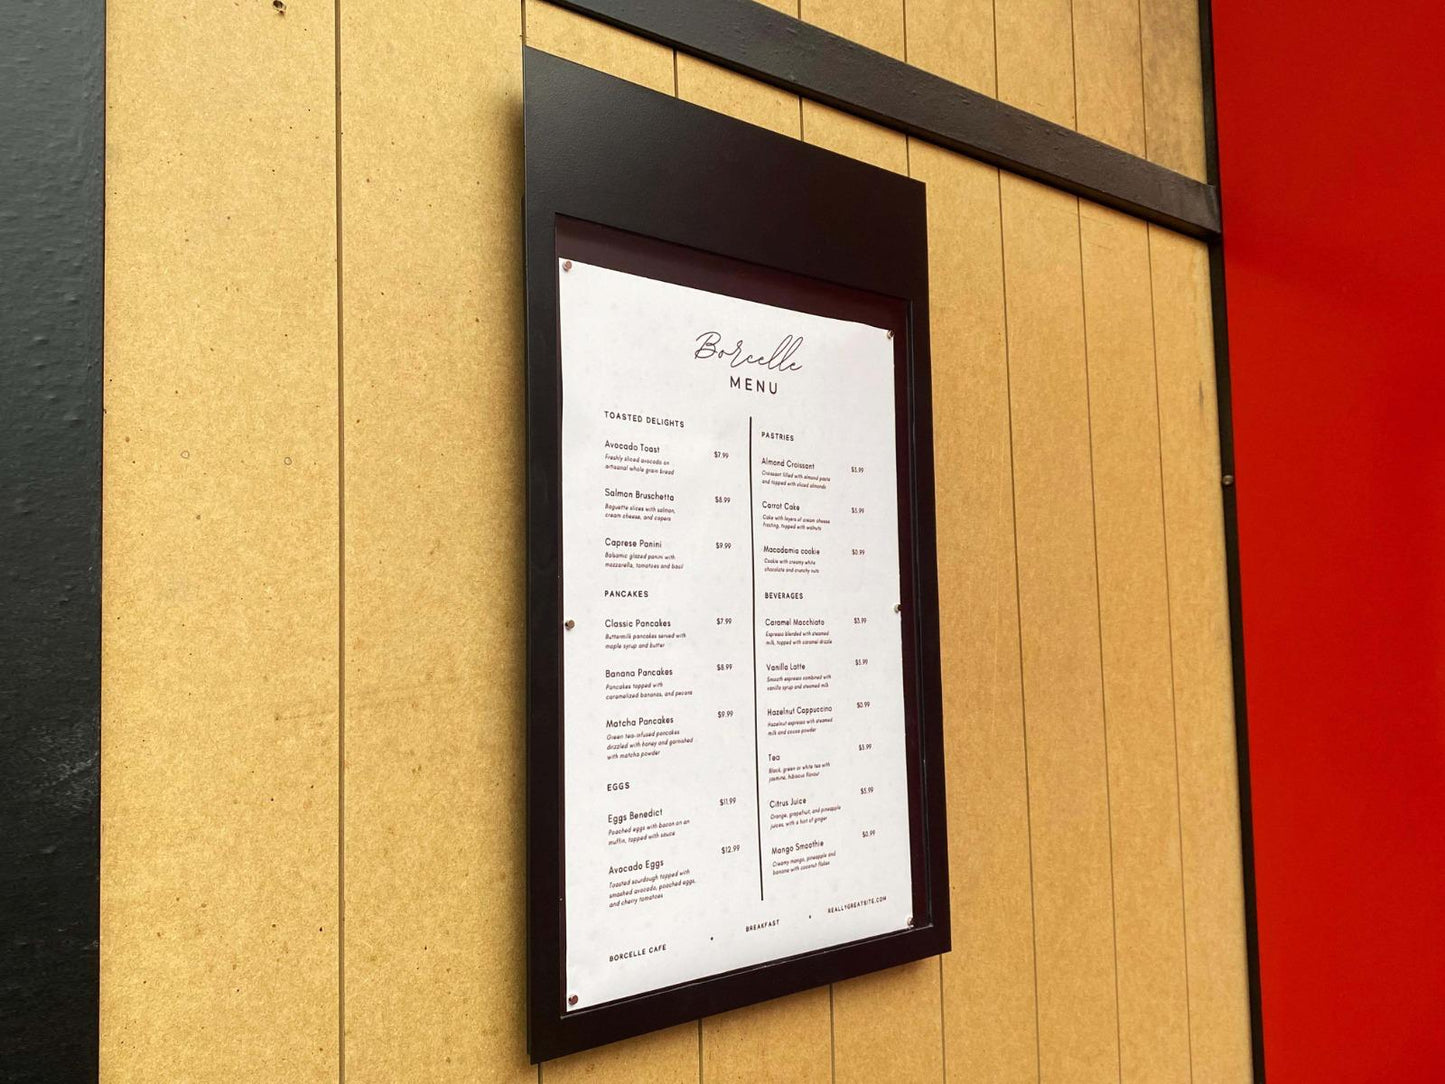 Borcelle
MENU
TOASTED DELIGHTS
Avocado Toast $7.99
Freshly sliced avocado on
artisanal whole grain bread
Salmon Bruschetta $8.99
Baguette slices with salmon,
cream cheese, and capers
Caprese Panini $9.99
Balsamic glazed panini with
mozzarella, tomatoes and basil
PANCAKES
Classic Pancakes $7.99
Buttermilk pancakes served with
maple syrup and butter
Banana Pancakes $8.99
Pancakes topped with
caramelized bananas, and pecans
Matcha Pancakes $9.99
Green tea-infused pancakes
drizzled with honey and garnished
with matcha powder
EGGS
Eggs Benedict $11.99
Poached eggs with bacon on an
muffin, topped with sauce
Avocado Eggs $12.99
Toasted sourdough topped with
smashed avocado, poached eggs,
and cherry tomatoes
PASTRIES
Almond Croissant
Croissant filled with almond paste
and topped with sliced almonds
Carrot Cake
Cake with layers of cream cheese
frosting, topped with walnuts
Macadamia cookie
Cookie with creamy white
chocolate and crunchy nuts
BEVERAGES
Caramel Macchiato
Espresso blended with steamed
milk, topped with caramel drizzle
Vanilla Latte
Smooth espresso combined with
vanilla syrup and steamed milk
Hazelnut Cappuccino
Hazelnut espresso with steamed
milk and cocoa powder
Tea
Black, green or white tea with
jasmine, hibiscus flavour
Citrus Juice
Orange, grapefruit, and pineapple
juices, with a hint of ginger
Mango Smoothie
Creamy mango, pineapple and
banana with coconut flakes
BORCELLE CAFE • BREAKFAST • REALLYGREATSITE.COM